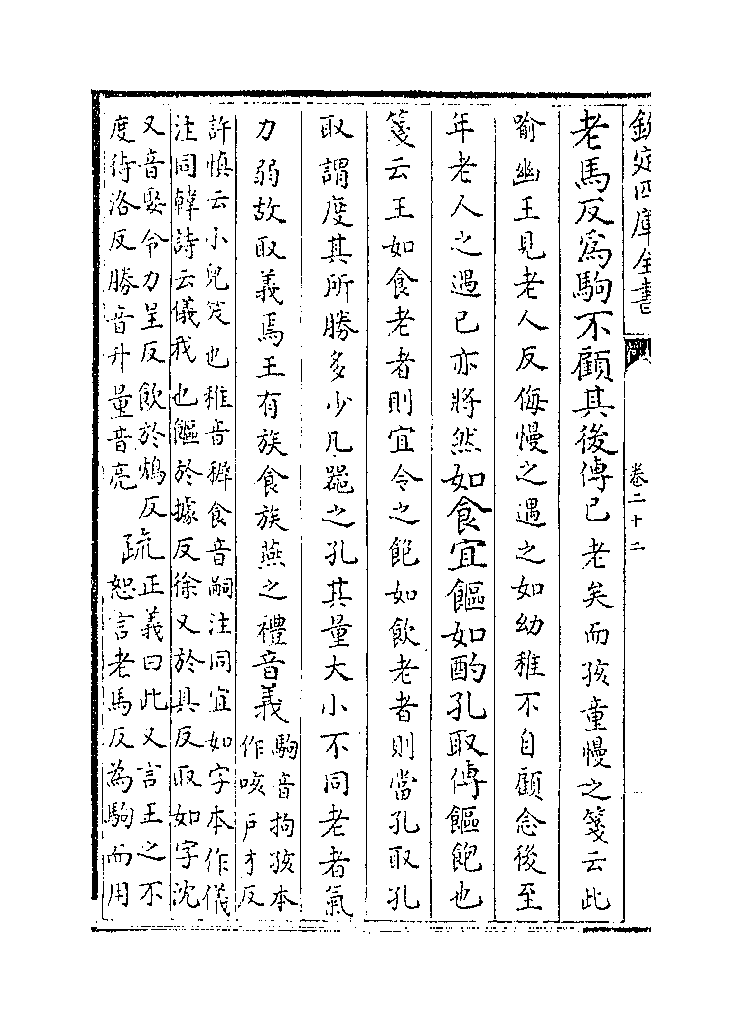 欽定四庫全書
卷二十二
老馬反爲駒不顧其後傳已老矣而孩童慢之箋云此
喻幽王見老人反侮慢之遇之如幼稚不自顧念後至
年老人之遇已亦將然如食宜饇如酌孔取傳饇飽也
箋云王如食老者則宜令之飽如飲老者則當孔取孔
取謂度其所勝多少凡器之孔其量大小不同老者氣
力弱故取義焉王有族食族燕之禮音義
駒音拘孩本
作咳戶才反
許慎云小兒笑也稚音穉食音嗣注同宜如字本作儀
注同韓詩云儀我也饇於據反徐又於具反取如字沈
又音娶令力呈反飲於鴆反
度待洛反勝音升量音亮
疏
正義曰此又言王之不
恕言老馬反為駒而用